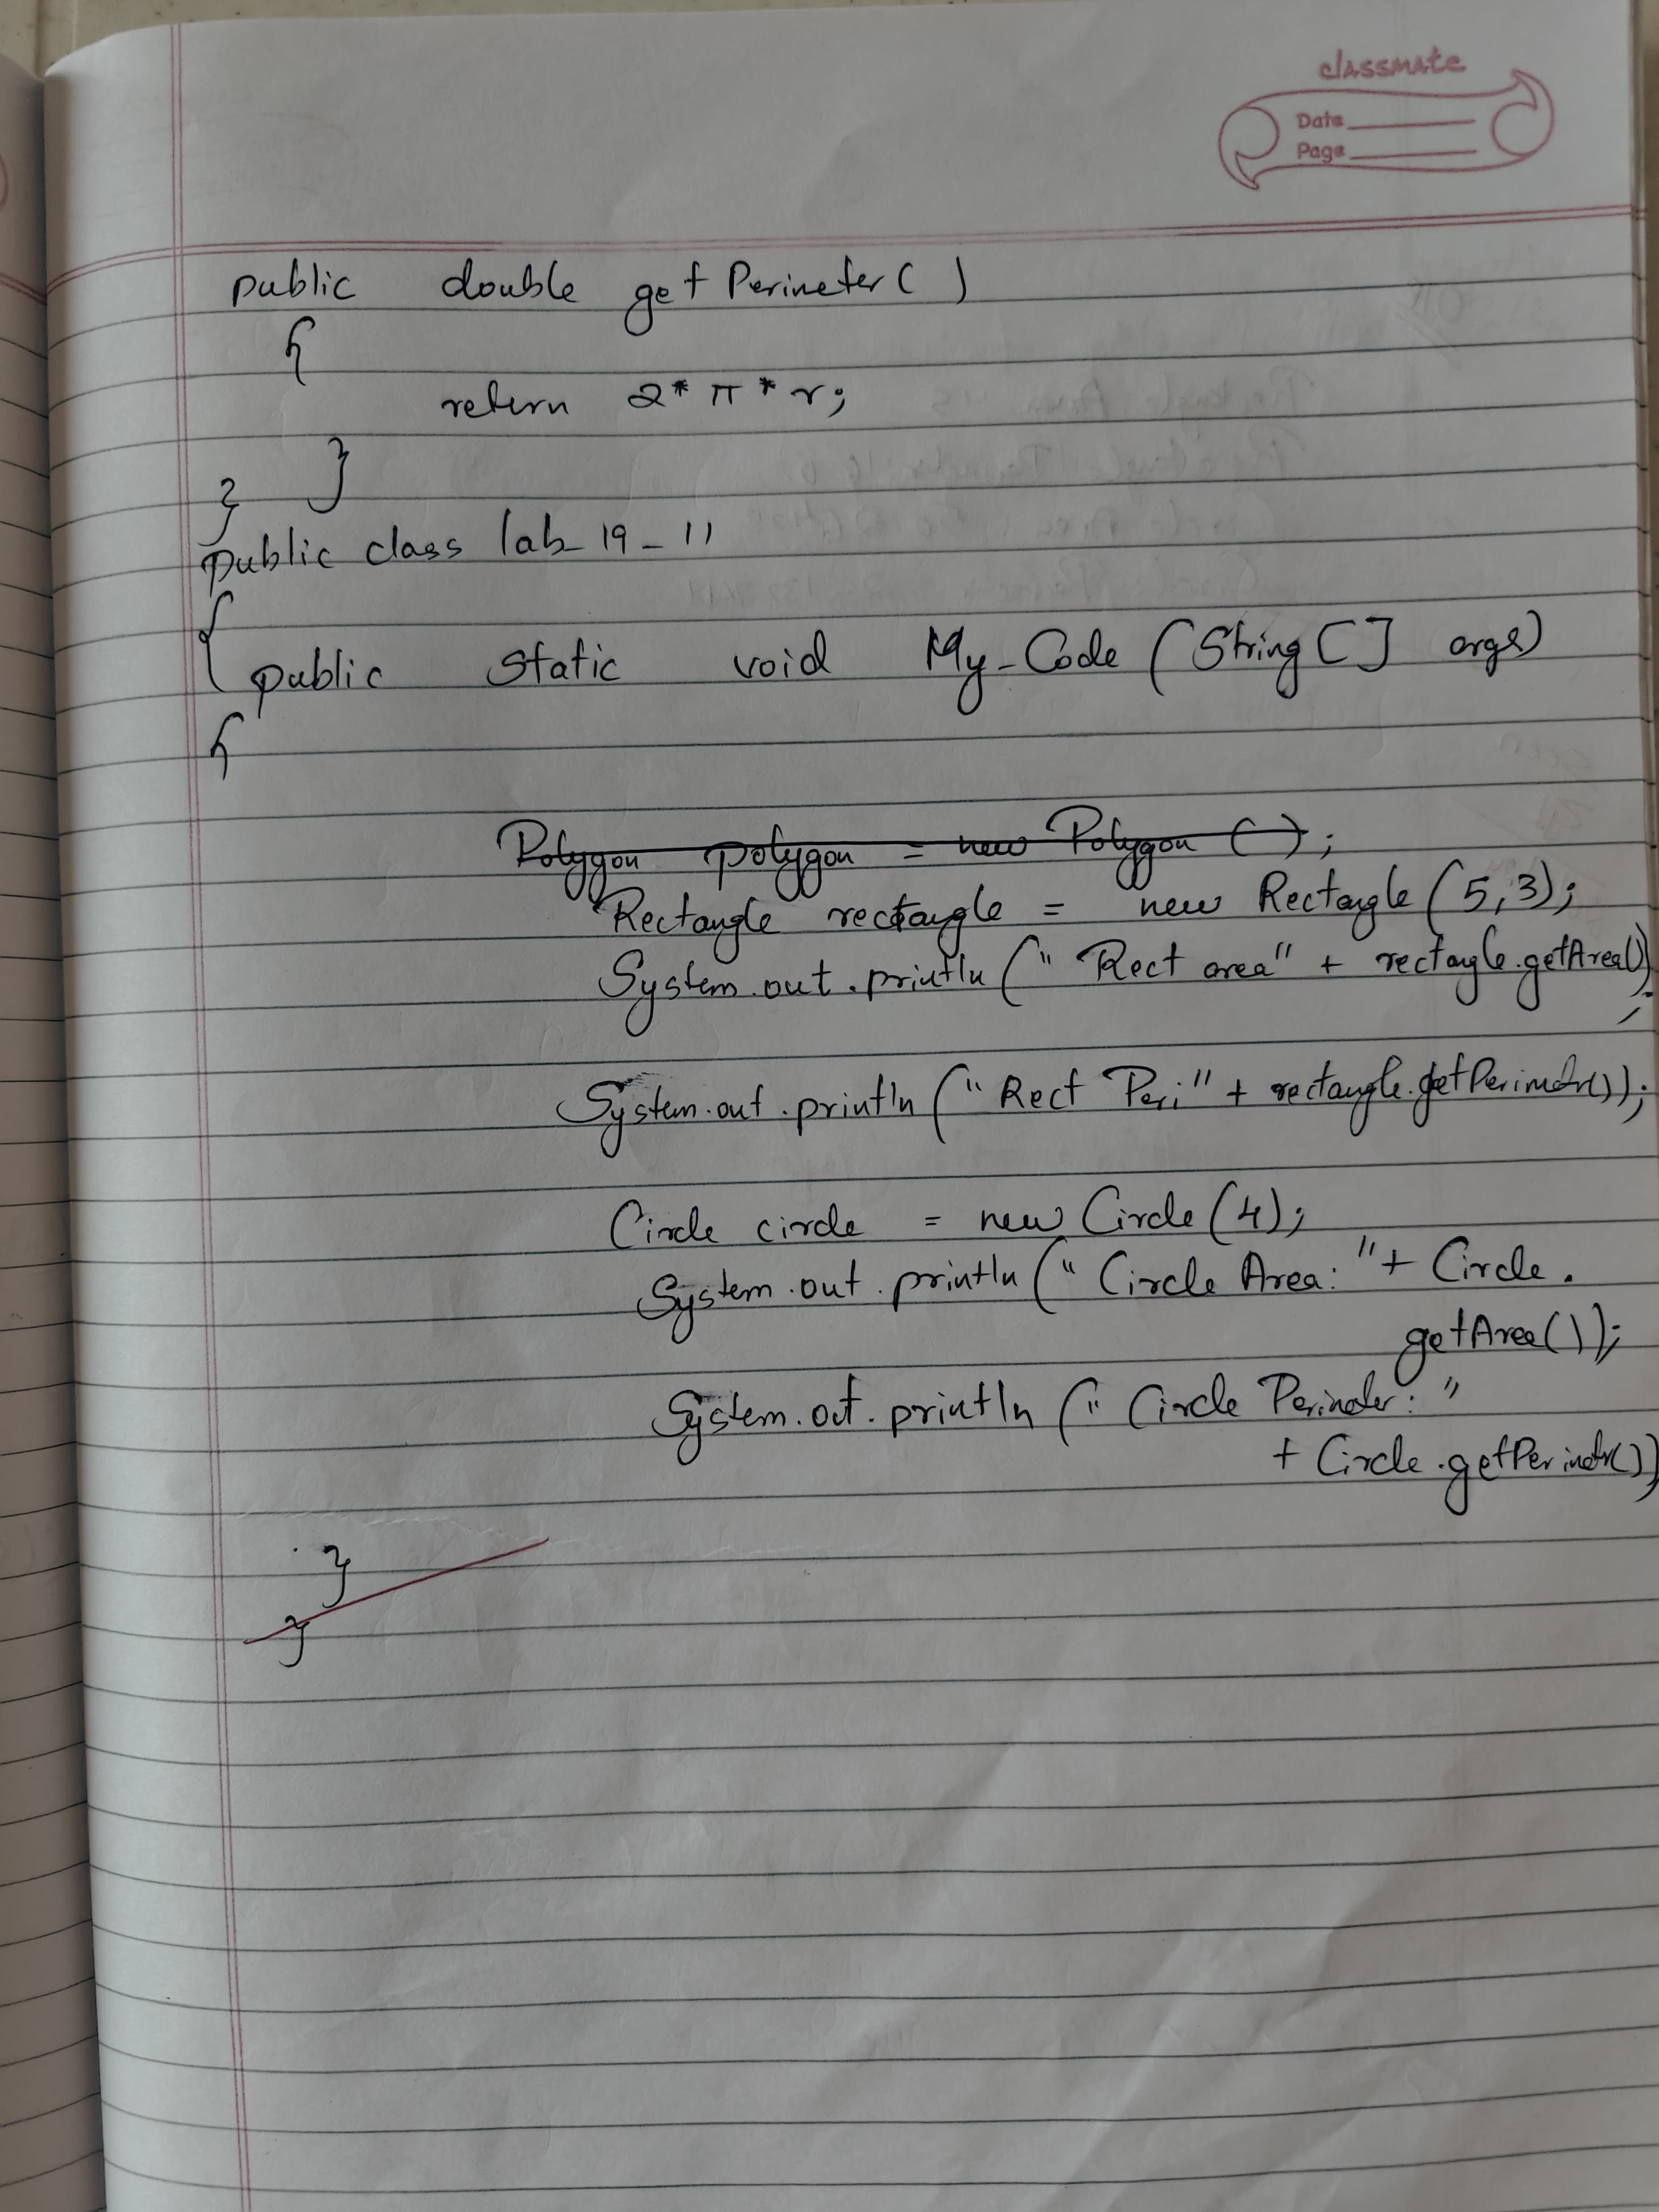 classmate
Date
Page
public double getPerimeter( )
{
return 2* π * r;
}
}
public class lab_19_11
{
public static void My_Code (String [] args)
{
Polygon polygon = new Polygon ( );
Rectangle rectangle = new Rectangle (5,3);
System.out.println (" Rect area" + rectagle.getArea()
);
System.out.println ("Rect Peri" + rectangle.getPerimetr());
Circle circle = new Circle (4);
System.out.println (" Circle Area: "+ Circle.
getArea());
System.out.println (" Circle Perimeter: "
+ Circle.getPerimetr())
;
}
}